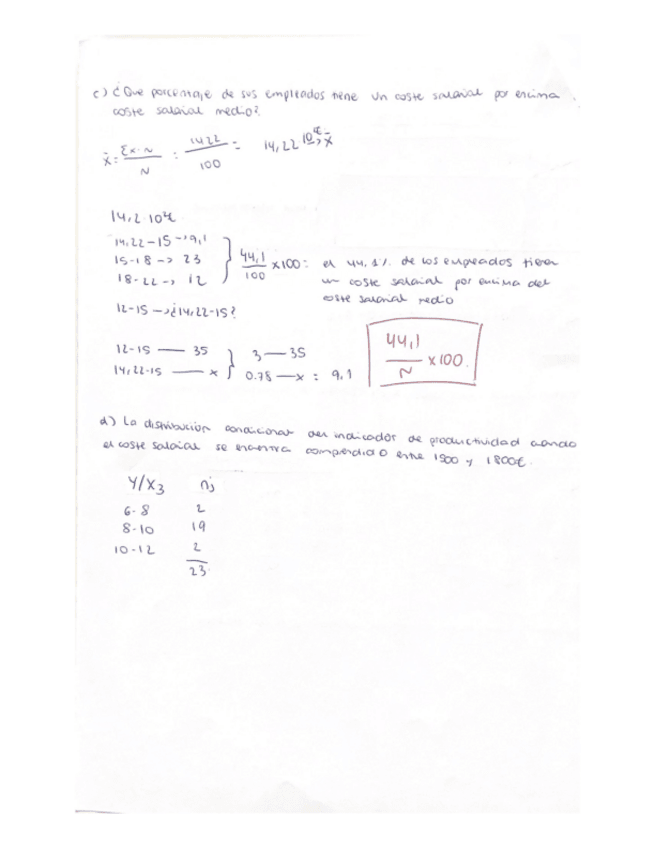 c) ¿Que porcentaje de sus empleados tiene un coste salarial por encima
coste salarial medio?
x̄ = Σx·N / N : 1422 / 100 = 14,22 10²€ → x̄
14,2 · 10²€
14,22-15 → 9,1
15-18 → 23
18-22 → 12
44,1 / 100 x100: el 44,1% de los empleados tienen
un coste salarial por encima del
coste salarial medio
12-15 → ¿14,22-15?
12-15 — 35 } 3 — 35
14,22-15 — x } 0.78 — x : 9,1
44,1 / N x100.
d) La distribución condicional del indicador de productividad cuando
el coste salarial se encuentra comprendido entre 1500 y 1800€.
Y/X₃ nj
6-8 2
8-10 19
10-12 2
23